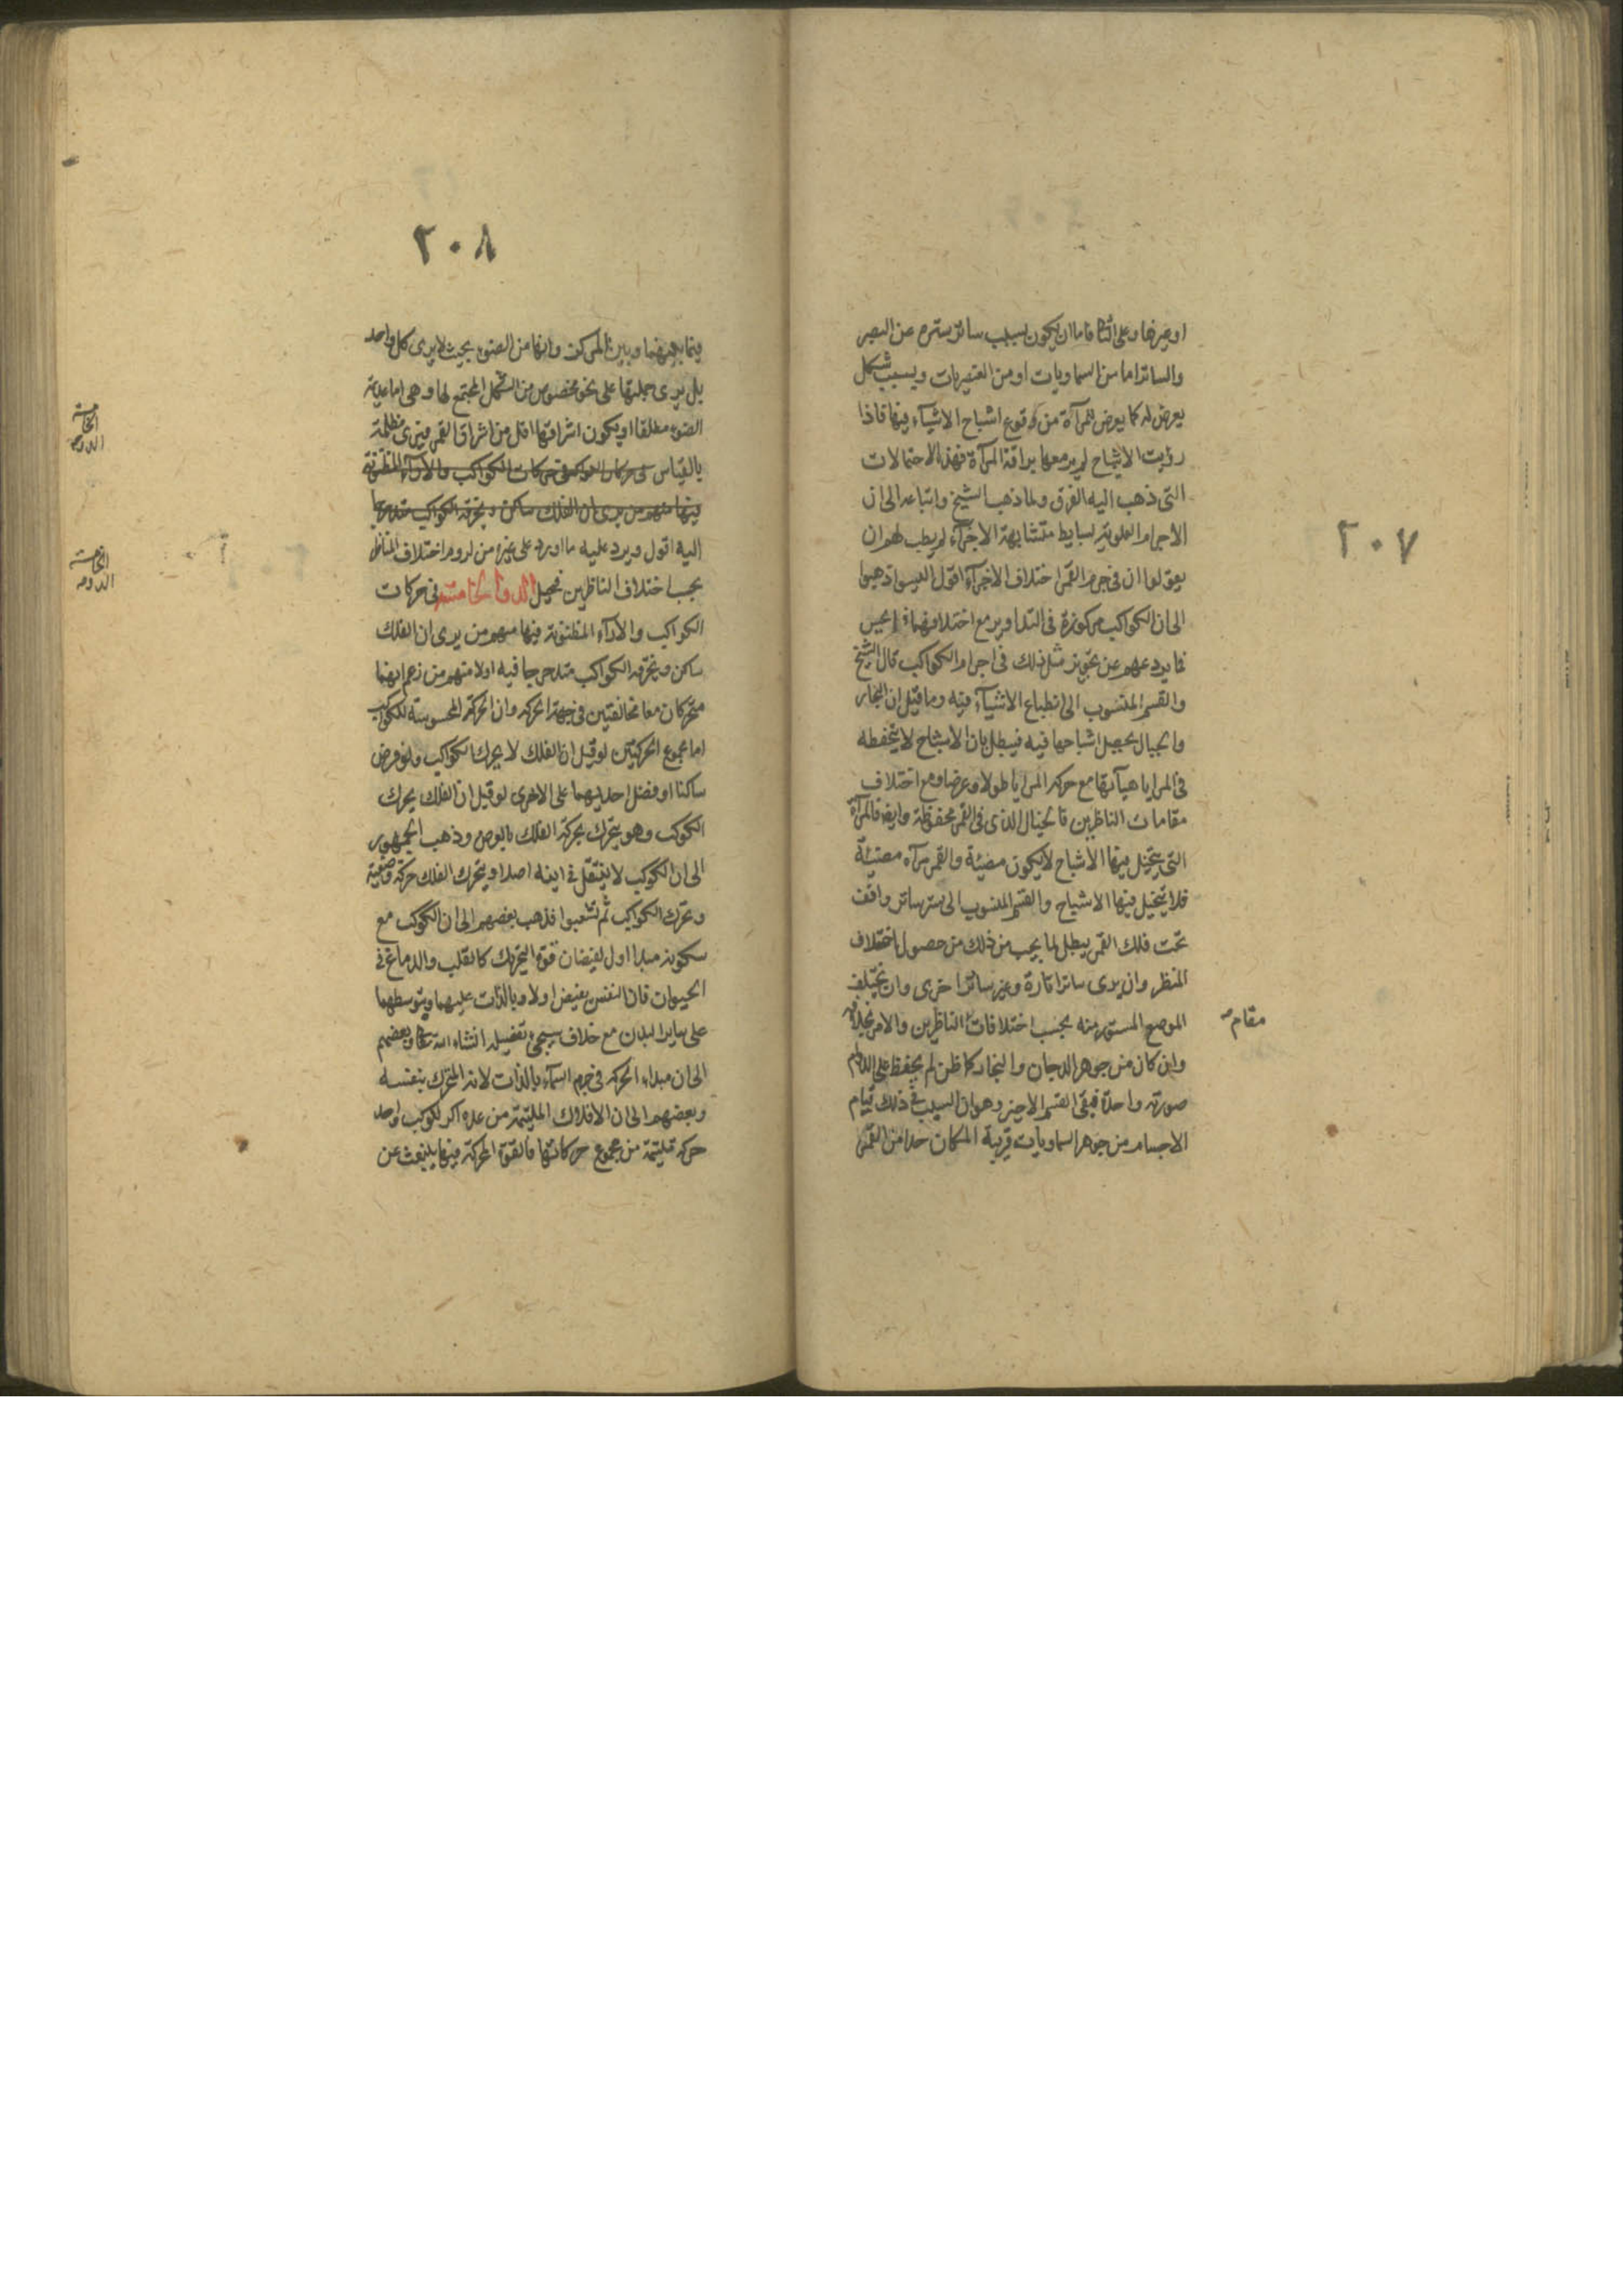 ٢٠٧
او غيرها وعلى الثا فاما ان يكون بسبب ساتر يستره عن البصر
والساتر اما من السماويات او من العنصريات وبسبب شكل
يعرض له كما يعرض للمرآة من وقوع اشباح الاشيآء فيها فاذا
رؤيت الاشباح لم ير معها براقة المرآة فهذه الاحتمالات
التى ذهب اليه الفرق ولما ذهب الشيخ واتباعه الى ان
الاجرام العلوية بسايط متشابهة الاجزآء لم يطب لهم ان
يقولوا ان فى جرم القمر اختلاف الاجزآء اقول اليسوا ذهبوا
الى ان الكواكب مركوزة فى التداوير مع اختلافهما
فما يردعهم عن تجويز مثل ذلك فى اجرام الكواكب قال الشيخ
والقسم المنسوب الى انطباع الاشيآء فيه وما قيل ان البحار
والجبال يحصل اشباحها فيه فيبطل بان الاشباح لا يتحفظه
فى المرايا هيآتها مع حركه المرايا طولا وعرضا ومع اختلاف
مقامات الناظرين فالخيال الذى فى القمر محفوظة وايضا فالمرآة
التى يتخيل فيها الاشباح لا يكون مضيئة والقمر مرآه مضيئة
فلا يتخيل فيها الاشباح والقسم المنسوب الى ستر ساتر واقف
تحت فلك القمر يبطل لما يجب من ذلك من حصول اختلاف
المنظر وان يرى ساترا تارة وغير ساتر اخرى وان يختلف
الموضع المستور منه بحسب اختلافات الناظرين والامر بخلافه
مقام
وان كان من جوهر الدخان والبخار كما ظن لم يحفظ على الدوام
صورته واحدة فبقى القسم الاخير وهو ان السبب فى ذلك قيام
الاجسام من جوهر السماويات قريبة المكان جدا من القمر
٢٠٨
فيما بينهما وبين المركز وانها من الصغر بحيث لا يرى كل واحد
بل يرى جملتها على نحو مخصوص من الشكل المجتمع لها وهى اما عديمة
الضوء مطلقا او يكون اشراقها اقل من اشراق القمر فيرى مظلمة
بالقياس فى حركات الكواكب والارآء المظنونة
فيها منهم من يرى ان الفلك ساكن ويخرقه الكواكب متدحرجا
اليه اقول ويرد عليه ما اورد على غيره من لزوم اختلاف المناظر
بحسب اختلاف الناظرين فحيل الدورة الخامسة فى حركات
الكواكب والارآء المظنونة فيها منهم من يرى ان الفلك
ساكن ويخرقه الكواكب متدحرجا فيه اولا منهم من زعم انهما
متحركان معا مخالفتين فى جهة الحركه وان الحركة المحسوسة للكواكب
اما مجموع الحركتين لو قيل ان الفلك لا يحرك الكواكب ولو فرض
ساكنا او فضل احديهما على الاخرى لو قيل ان الفلك يحرك
الكوكب وهو يتحرك بحركة الفلك بالعرض وذهب الجمهور
الى ان الكوكب لا ينتقل فى اينه اصلا ويتحرك الفلك حركة وضعية
وتحرك الكواكب ثم تشعبوا فذهب بعضهم الى ان الكوكب مع
سكونه مبدا اول لفيضان قوة التحريك كالقلب والدماغ فى
الحيوان فان النفس يفيض اولا وبالذات عليهما وبتوسطهما
على ساير البدن مع خلاف سيجئ تفصيله انشاء الله تعالى وبعضهم
الى ان مبداء الحركه فى جرم السمآء بالذات لانه المتحرك بنفسه
وبعضهم الى ان الافلاك الملتئمة من عدة اكر لكوكب واحد
حركه ملتئمة من مجموع حركاتها فالقوة المحركة فيها ينبعث عن
الخامسة
الدورة
الخامسة
الدورة